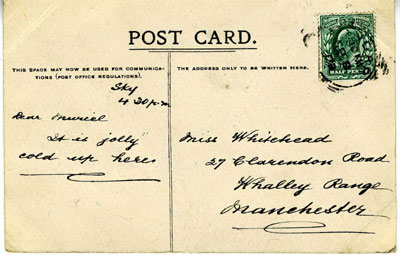 POST CARD.
THIS SPACE MAY NOW BE USED FOR COMMUNICA-
TIONS (POST OFFICE REGULATIONS).
Sky
4.30 p.m
Dear Muriel
It is jolly
cold up here
THE ADDRESS ONLY TO BE WRITTEN HERE.
HALF PENNY
Miss Whitehead
27 Clarendon Road
Whalley Range
Manchester